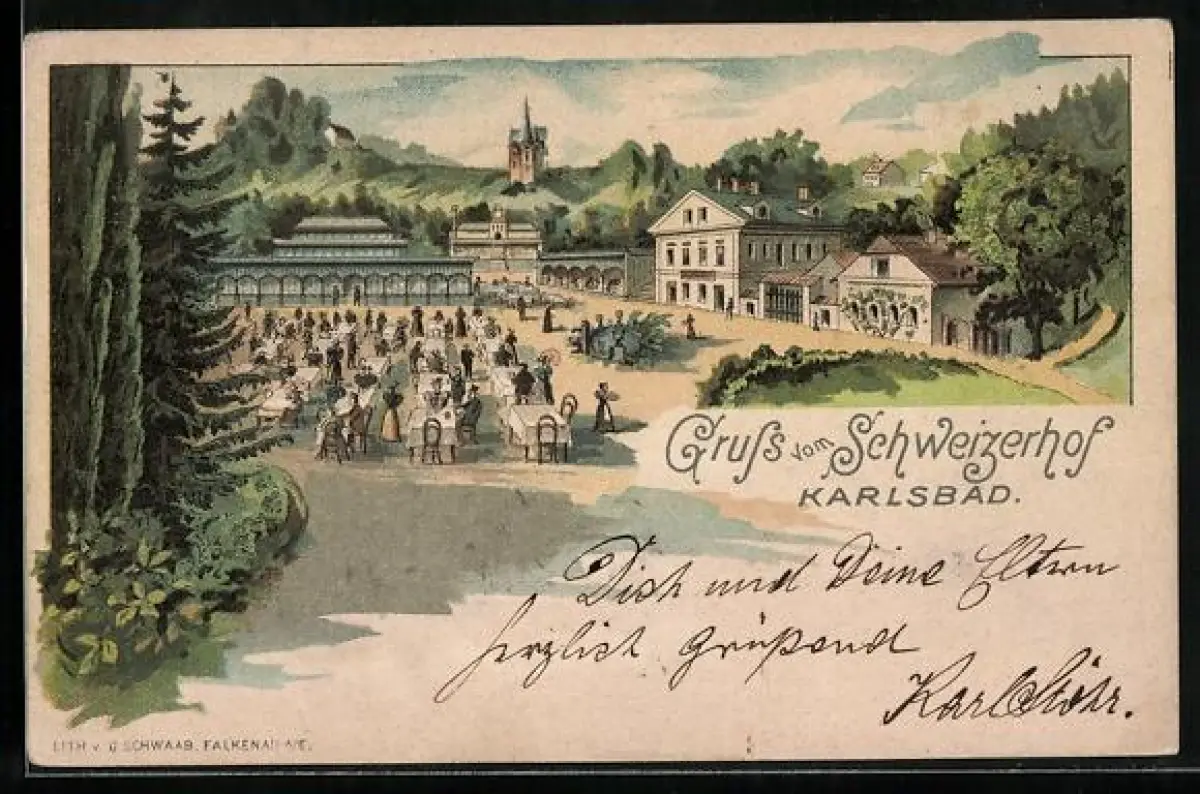 Gruß vom Schweizerhof
KARLSBAD.
Dich und Deine Eltern
herzlich grüßend
Karl Stöhr.
LITH v. G SCHWAAB, FALKENAU A/E.